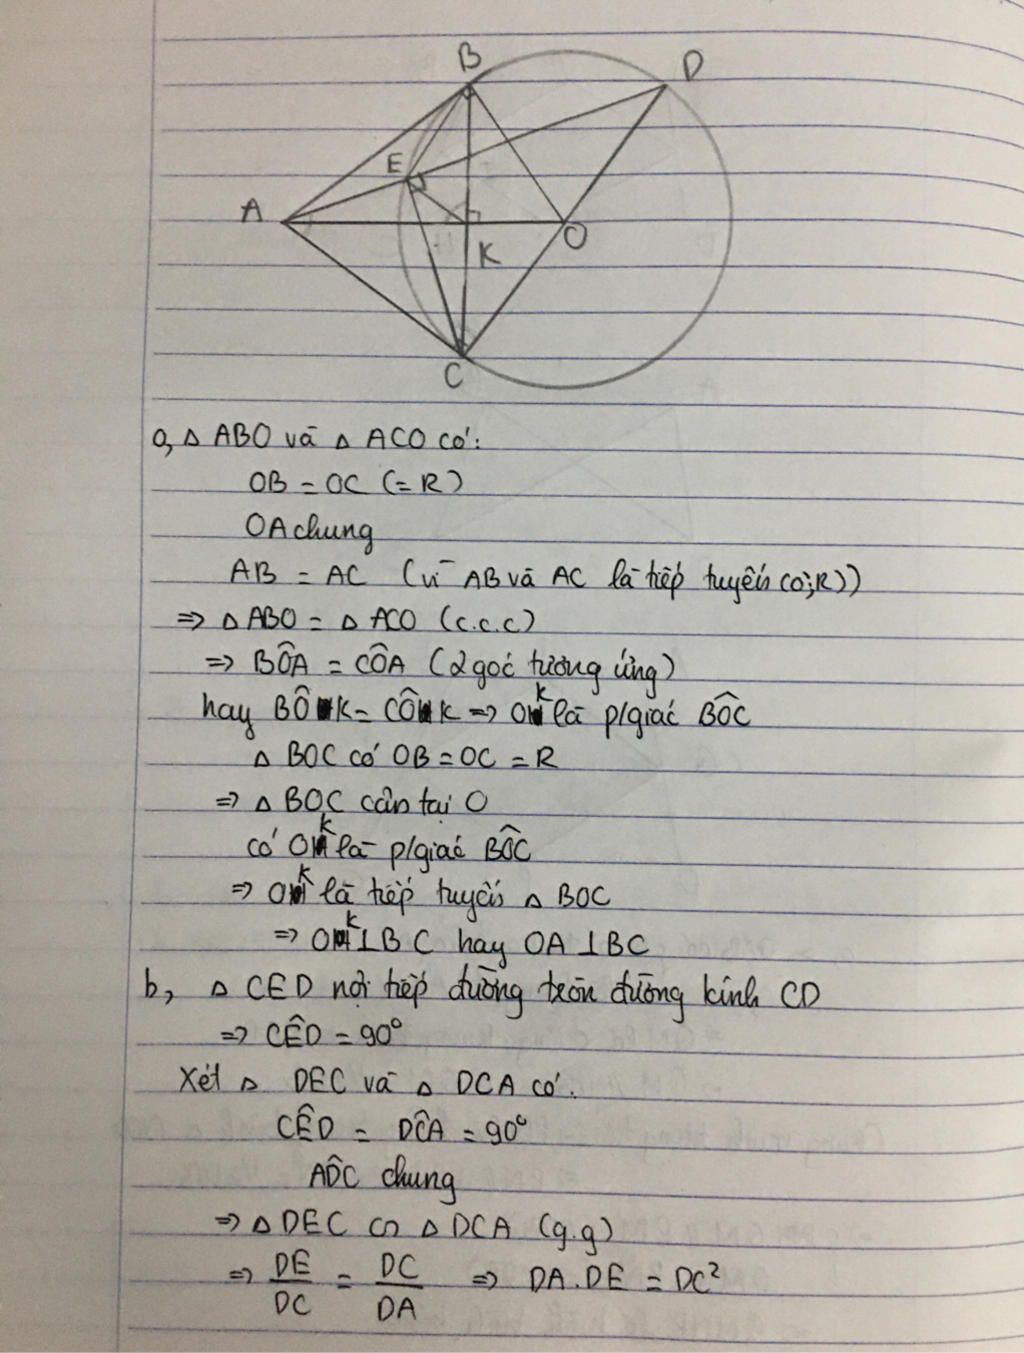 B
D
E
A
O
K
C
a, △ ABO và △ ACO có:
OB = OC (= R)
OA chung
AB = AC (vì AB và AC là tiếp tuyến (O;R))
⇒ △ ABO = △ ACO (c.c.c)
⇒ BÔA = CÔA (2 góc tương ứng)
hay BÔK = CÔK ⇒ OK là p/giác BÔC
△ BOC có OB = OC = R
⇒ △ BOC cân tại O
có OK là p/giác BÔC
⇒ OK là tiếp tuyến △ BOC
⇒ OK ⊥ BC hay OA ⊥ BC
b, △ CED nội tiếp đường tròn đường kính CD
⇒ CÊD = 90°
Xét △ DEC và △ DCA có:
CÊD = DĈA = 90°
AD̂C chung
⇒ △ DEC ∽ △ DCA (g.g)
⇒ DE/DC = DC/DA ⇒ DA.DE = DC²